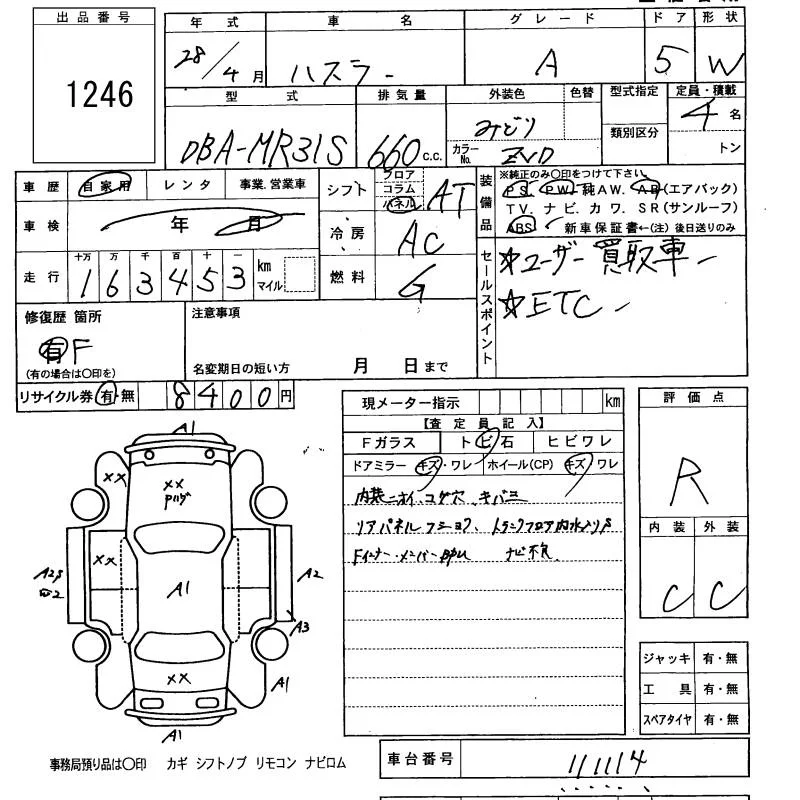 出品番号
1246
年式 車名 グレード ドア 形状
28/4月 ハスラー A 5 W
型式 排気量 外装色 色替 型式指定 定員・積載
DBA-MR31S 660c.c. みどり カラーNo. ZVD 類別区分 4名 トン
車歴 自家用 レンタ 事業.営業車
シフト フロア コラム パネル AT
車検 年 月
冷房 AC
走行 十万 万 千 百 十 一
163453 km マイル
燃料 G
装備品 ※純正のみ〇印をつけて下さい。
PS. PW. 純AW. AB(エアバック)
TV. ナビ. カワ. SR(サンルーフ)
ABS 新車保証書←(注) 後日送りのみ
セールスポイント
☆ユーザー買取車
☆ETC
修復歴 箇所
有 F
(有の場合は〇印を)
注意事項
名変期日の短い方 月 日まで
リサイクル券 有・無 8400円
現メーター指示 km
【査定員記入】
Fガラス トビ石 ヒビワレ
ドアミラー キズ・ワレ ホイール(CP) キズ ワレ
内装ニオイ、コゲ穴、キバミ
リアパネル トランクフロア内
Fインナー・メンバー ナビ不良
評価点
R
内装 外装
C C
A1
××
××
××
A1
A2
A2
A3
××
A1
A1
ジャッキ 有・無
工具 有・無
スペアタイヤ 有・無
事務局預り品は〇印 カギ シフトノブ リモコン ナビロム
車台番号 111114